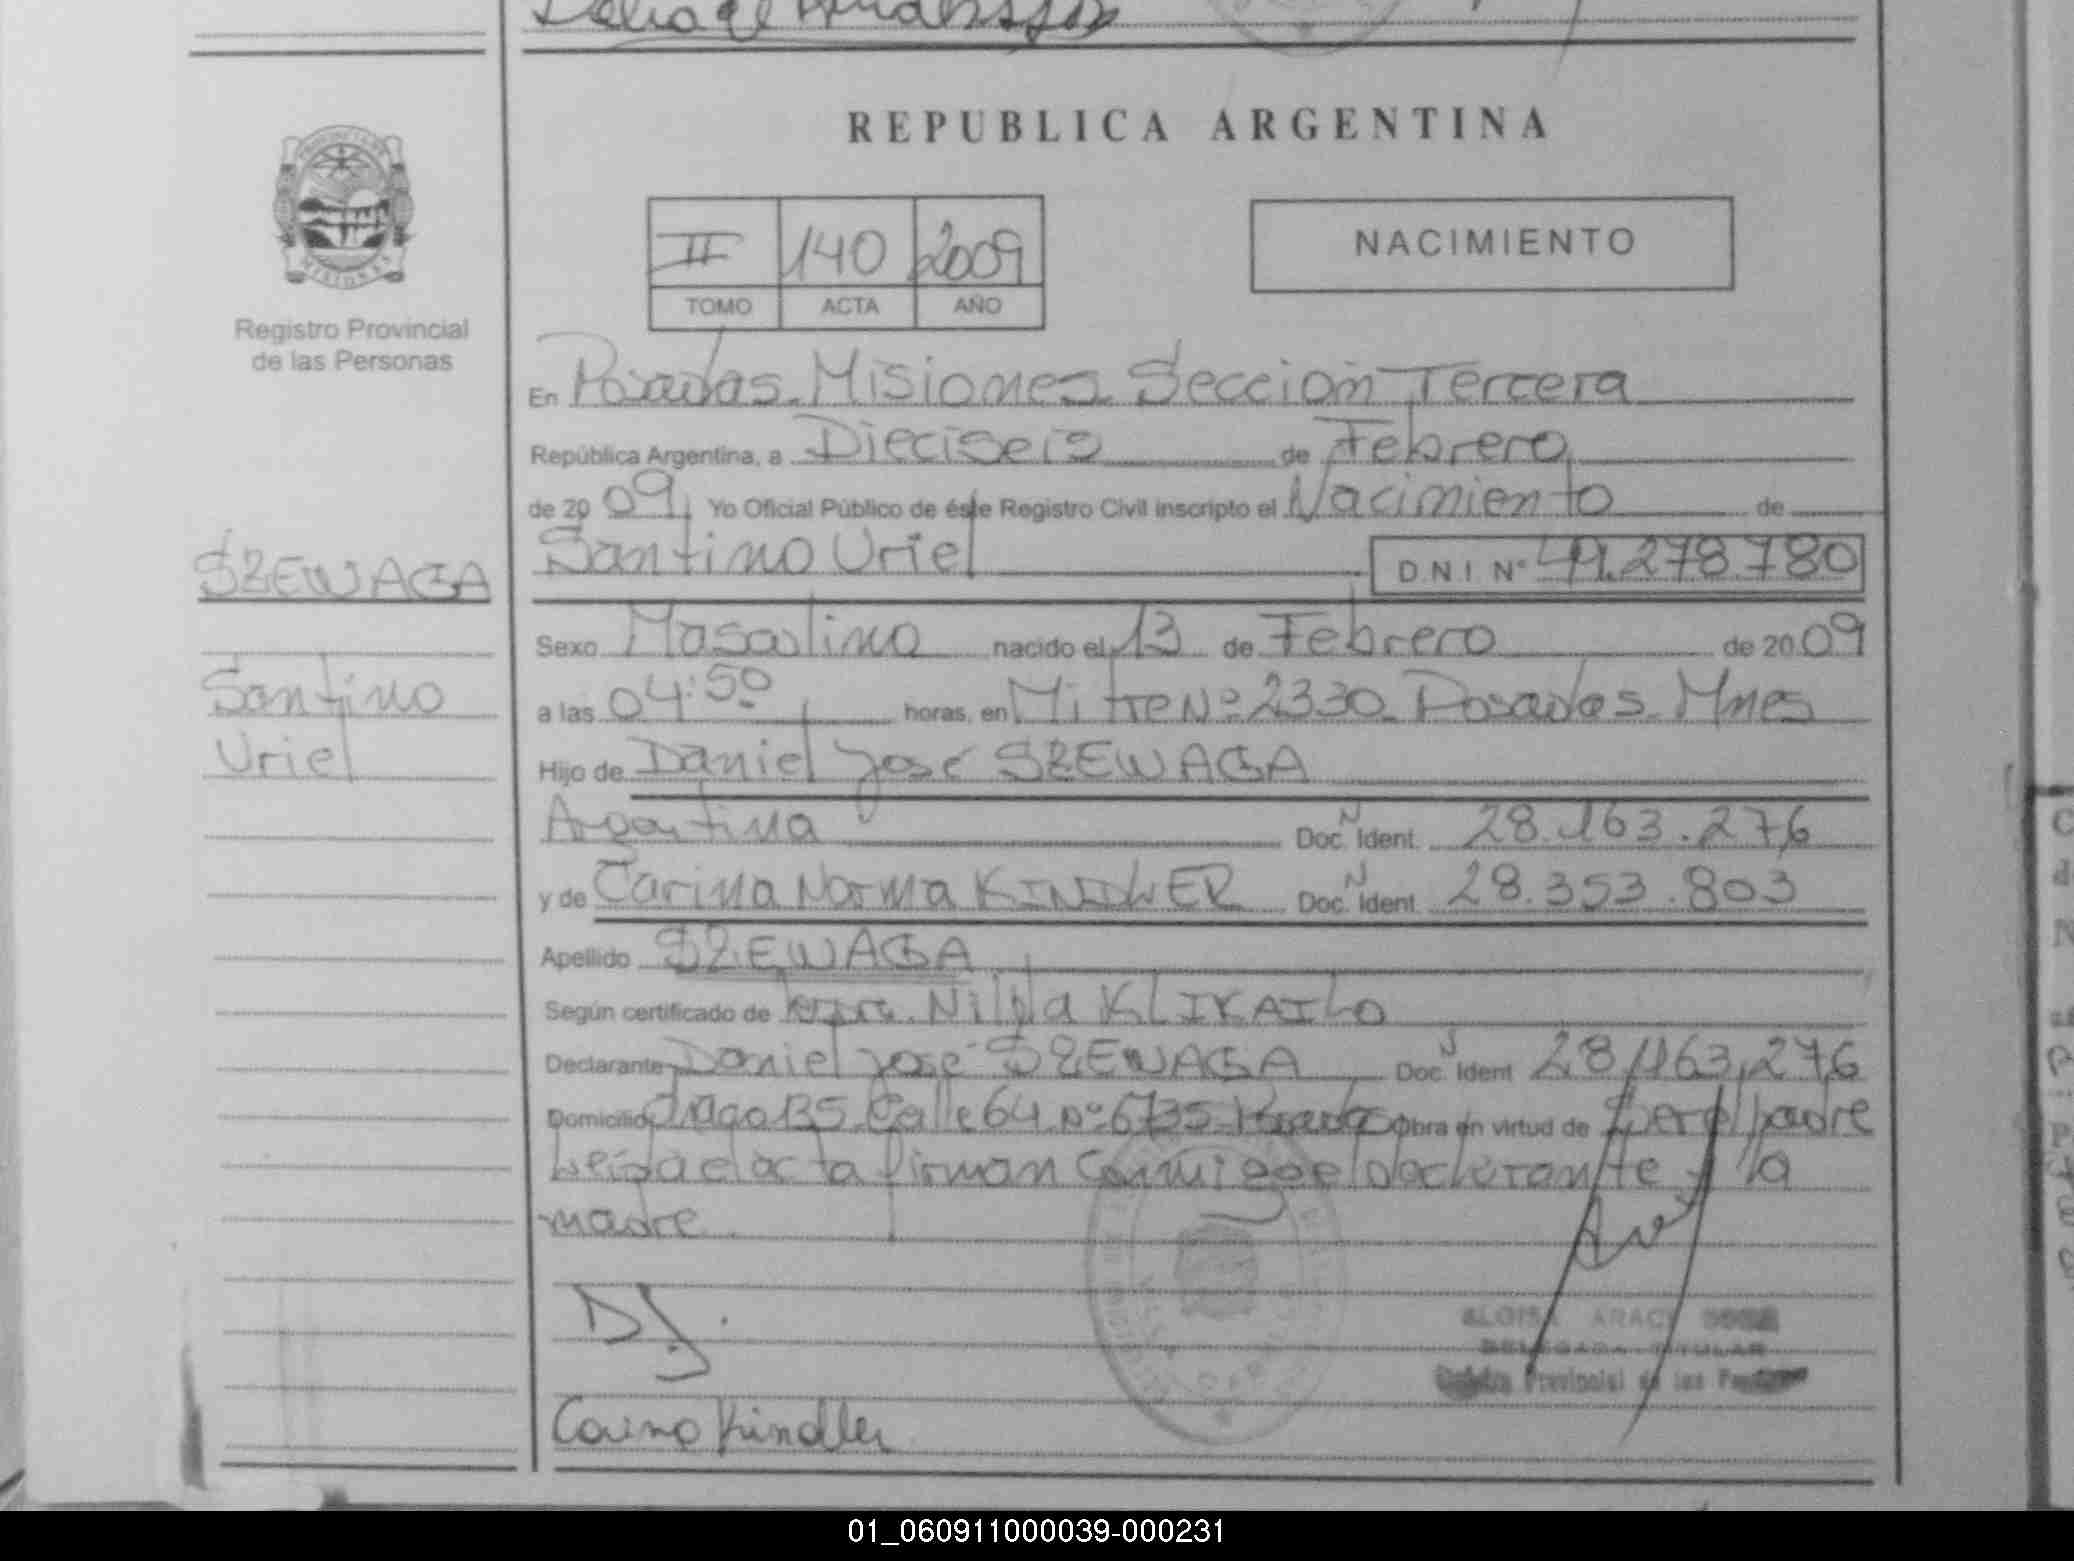 REPUBLICA ARGENTINA
II 140 2009
TOMO ACTA AÑO
NACIMIENTO
PROVINCIA DE
MISIONES
Registro Provincial
de las Personas
En Posadas. Misiones. Sección Tercera
República Argentina, a Dieciseis de Febrero
de 2009 Yo Oficial Público de éste Registro Civil inscripto el Nacimiento de
Santino Uriel D.N.I Nº 49.278.780
SZEWAGA
Santino
Uriel
Sexo Masculino nacido el 13 de Febrero de 2009
a las 04:50 horas, en Mitre Nº 2330. Posadas. Mnes
Hijo de Daniel José SZEWAGA
Argentina Doc. N Ident. 28.163.276
y de Carina Norma KINDLER Doc. N Ident. 28.353.803
Apellido SZEWAGA
Según certificado de Nilda KLIKAILO
Declarante Daniel José SZEWAGA Doc. N Ident 28.163.276
Domicilio Calle 64 Nº 6735 Posadas Obra en virtud de Ser el padre
Leída el acta firman Conmigo el declarante y la
madre
DJ.
Carina Kindler
DELEGADA TITULAR
Provincial de las
01_060911000039-000231